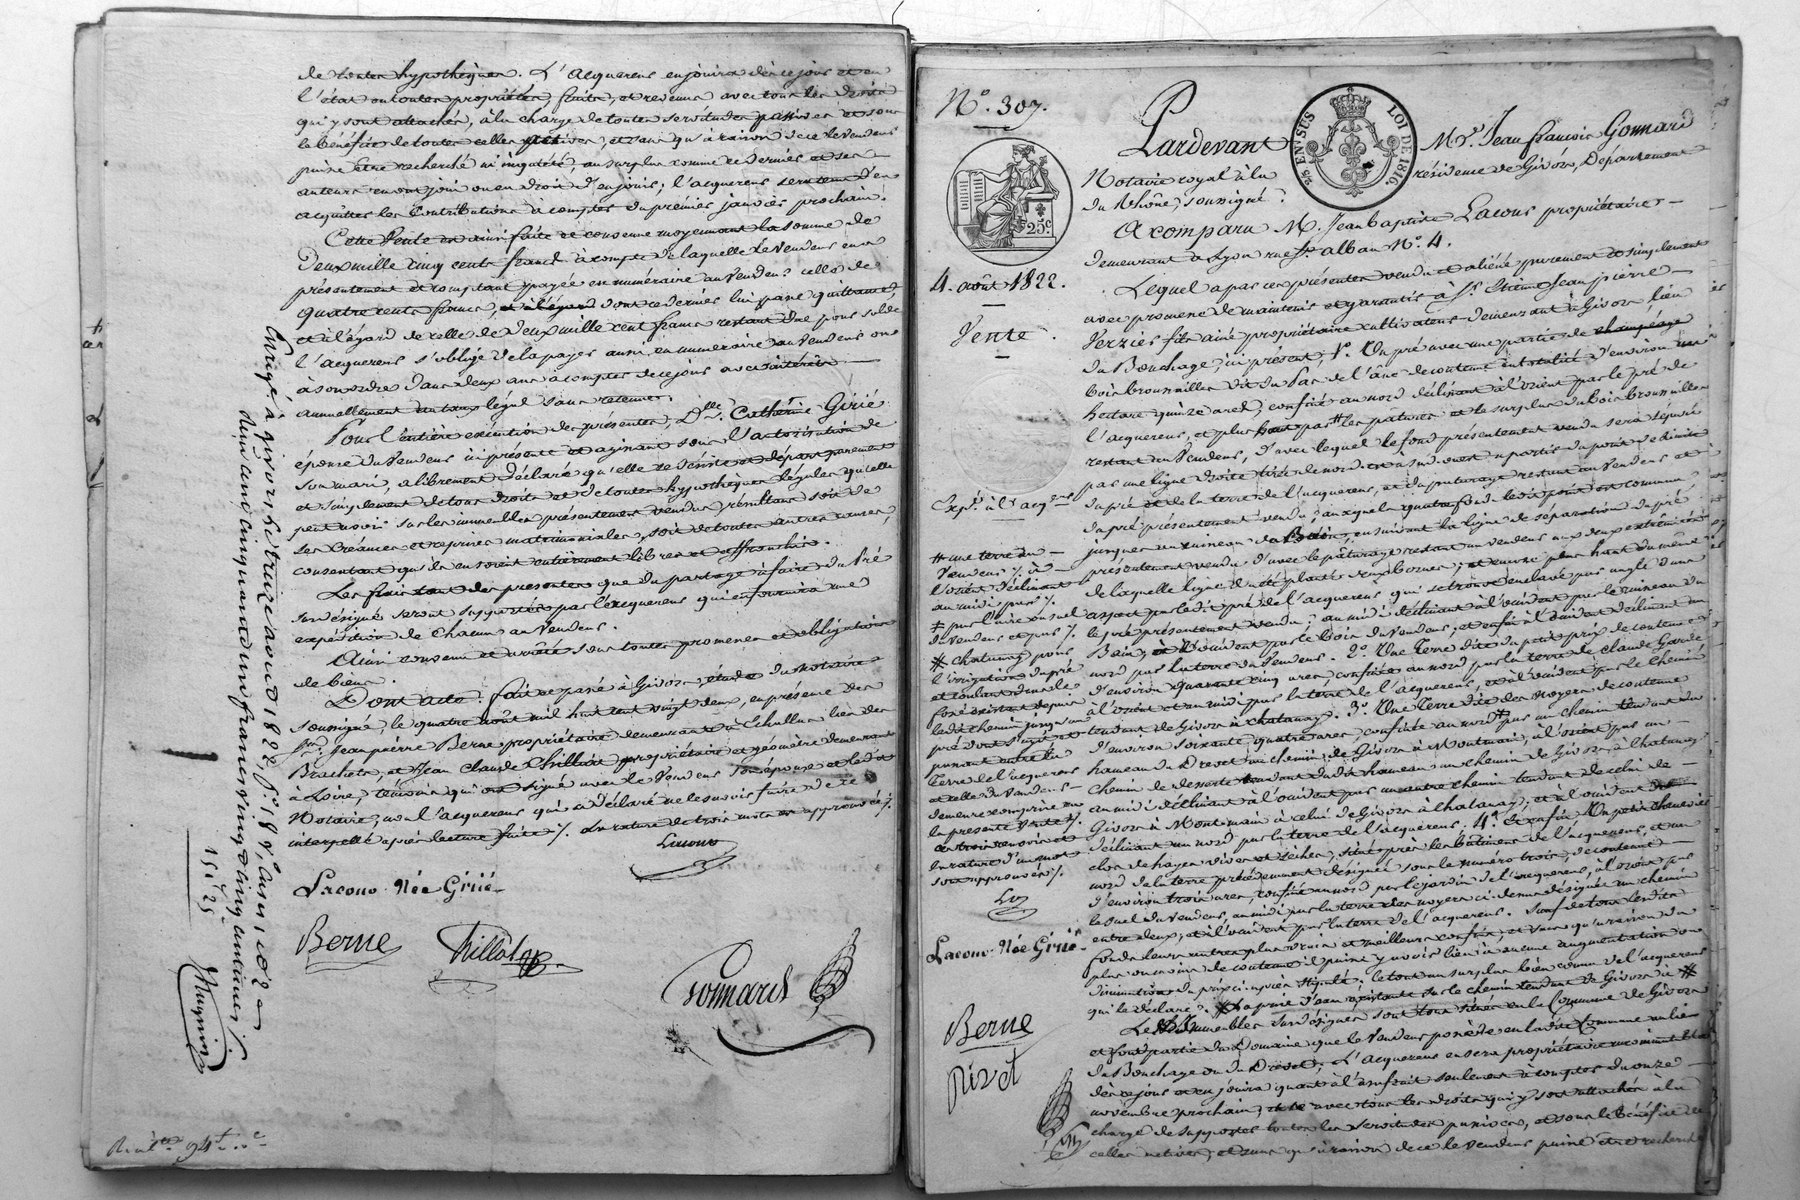 de toutes hypothèques. L'acquereur en jouira dès ce jour et en
l'état ou toutes propriétés, fruits, et revenus avec tous les droits
qui y sont attachés, à la charge de toutes servitudes passives et sous
le bénéfice de toutes celles actives, et sans qu'à raison de ce le Vendeur
puisse être recherché ni inquiété, au surplus comme ce dernier et ses
auteurs en ont joui ou eu droit d'en jouir; l'acquereur sera tenu d'en
acquitter les Contributions à compter du premier janvier prochain.
Cette Vente est ainsi faite et convenue moyennant la somme de
Deux mille cinq cents francs à compte de laquelle le Vendeur en a
présentement et comptant payée en numéraire au Vendeur celle de
quatre cents francs, dont ce dernier lui passe quittance,
et à l'égard de celle de Deux mille cent francs restant due pour solde,
l'acquereur s'oblige de la payer aussi en numéraire au Vendeur ou
à son ordre dans deux ans à compter de ce jour avec intérêts
annuellement au taux légal sans retenue.
Pour l'entière exécution des présentes, Dlle. Catherine Girié
épouse du Vendeur ici présente et agissant sous l'autorisation de
son mari, a librement déclaré qu'elle se désiste et départ purement
et simplement de tous droits et de toutes hypothèques légales qu'elle
peut avoir sur les immeubles présentement vendus, résultant soit de
ses créances et reprises matrimoniales, soit de toutes autres causes,
consentant qu'ils en soient entièrement libres et affranchis.
Les frais tant des présentes que du partage à faire du Pré
susdésigné seront supportés par l'acquereur qui en fournira une
expédition de chacun au Vendeur.
Ainsi convenu et arrêté sous toutes promesses et obligations
de biens.
Dont acte: fait et passé à Givors, étude du Notaire
soussigné, le quatre août mil huit cent vingt deux, en présence des
Srs. Jean pierre Berne propriétaire demeurant à Echallas lieu des
Brachets, et Jean Claude Chillat, propriétaire et géomètre demeurant
à Loire, témoins qui ont signé avec le Vendeur son épouse et le dit
Notaire, non l'acquereur qui a déclaré ne le savoir faire de ce
interpellé après lecture faite /. La rature de trois mots est approuvée /.
Lacour
Lacour Née Girié
Berne Chillat
Gonnard
Enrgé à givors le treize août 1822, fo. 18
deux cent cinquante un francs vingt cinq centimes
251,,25
Magnin
No. 307.
25c
2/5 EN SUS LOI DE 1816.
Pardevant Me. Jean françois Gonnard
Notaire royal à la résidence de Givors, Département
du Rhône, soussigné:
A comparu M. Jean baptiste Lacour propriétaire
demeurant à Lyon rue St. alban No. 4.
4. août 1822.
Vente.
Lequel a par ces présentes vendu et aliéné purement et simplement
avec promesse de maintenir et garantir à Sr. Etienne Jean pierre
Verzier fils ainé propriétaire cultivateur demeurant à Givors, lieu
du Bouchage, ici présent, 1o. Un pré avec une partie de
bois broussailles dit du Pas de l'âne de contenue en totalité d'environ un
hectare quinze ares, confiné au nord déclinant à l'orient par le pré de
l'acquereur, et plus haut par les patures et le surplus du bois broussailles
restant au Vendeur, d'avec lequel le fond présentement vendu sera séparé
par une ligne droite tirée de nord-est à sud-ouest à partir du point de limite
du pré et de la terre de l'acquereur, et du pâturage restant au Vendeur et
du pré présentement vendu, auxquels quatre fonds ledit point est commun
jusques au ruisseau de Bain, en suivant la ligne de séparation du pré
présentement vendu d'avec le pâturage restant au vendeur aux deux extrémités
de laquelle ligne il a été planté deux bornes; et encore plus haut du même
aspect par ledit pré de l'acquereur qui se trouve enclavé par angle dans
le pré présentement vendu; au midi déclinant à l'occident par le ruisseau du
Bain, à l'occident par le bois du Vendeur, et enfin à l'occident déclinant au
nord par la terre du Vendeur. 2o. Une Terre dite du petit prix de contenue
d'environ quarante cinq ares, confinée au nord par la terre de claude Garde
à l'orient et au midi par la terre de l'acquereur, et à l'occident par le chemin
tendant de Givors à chatanay. 3o. Une Terre dite des Noyers de contenue
d'environ soixante quatre ares, confinée au nord par un chemin tendant du
hameau du Drevet au chemin de Givors à Montmain, à l'orient par un
chemin de desserte tendant du dit hameau au chemin de Givors à Chatanay
au midi déclinant à l'occident par un autre chemin tendant de celui de
Givors à Montmain à celui de Givors à Chatanay, et à l'occident
déclinant au nord par la terre de l'acquereur. 4o. Et enfin Un petit
clos de hayes vives et sèches, situé près les bâtimens de l'acquereur, et au
nord de la terre précédemment désignée sous le numéro trois, de contenue
d'environ trois ares, confiné au nord par le jardin de l'acquereur, à l'orient par
lequel du Vendeur, au midi par la terre des noyers ci-dessus désignée un chemin
entre deux, et à l'occident par la terre de l'acquereur. Sauf de tous lesdits
fonds leurs autres plus vrais et meilleurs confins, et sans qu'à raison du
plus ou moins de contenue il puisse y avoir lieu à aucune augmentation ou
diminution du prix ci-après stipulé; le tout au surplus bien connu de l'acquereur
qui le déclare. # la prise d'eau existante sur le chemin tendant de Givors à #
Les Immeubles susdésignés sont tous situés en la Commune de Givors
et font partie du Domaine que le Vendeur possède en ladite Commune au lieu
du Bouchage ou du Drevet; L'acquereur en sera propriétaire incommutable
dès ce jour et en jouira quant à l'usufruit seulement à compter du onze
novembre prochain, avec tous les droits qui y sont attachés à la
charge de supporter toutes les servitudes passives, et sous le bénéfice de
celles actives, et sans qu'à raison de ce le Vendeur puisse être recherché
Exp. à l'acqeur
# une terre du
Vendeur /. à
l'orient déclinant
au midi par /.
# chatanay pour
l'irrigation du pré
et coulant dans le
fossé existant depuis
ledit chemin jusqu'au
pré dont s'agit et
passant entre la
Terre de l'acquereur
et celle du Vendeur
demeure comprise en
la présente Vente /.
Les trois renvois et
la rature d'un mot
sont approuvés /.
Lacour Née Girié
Berne